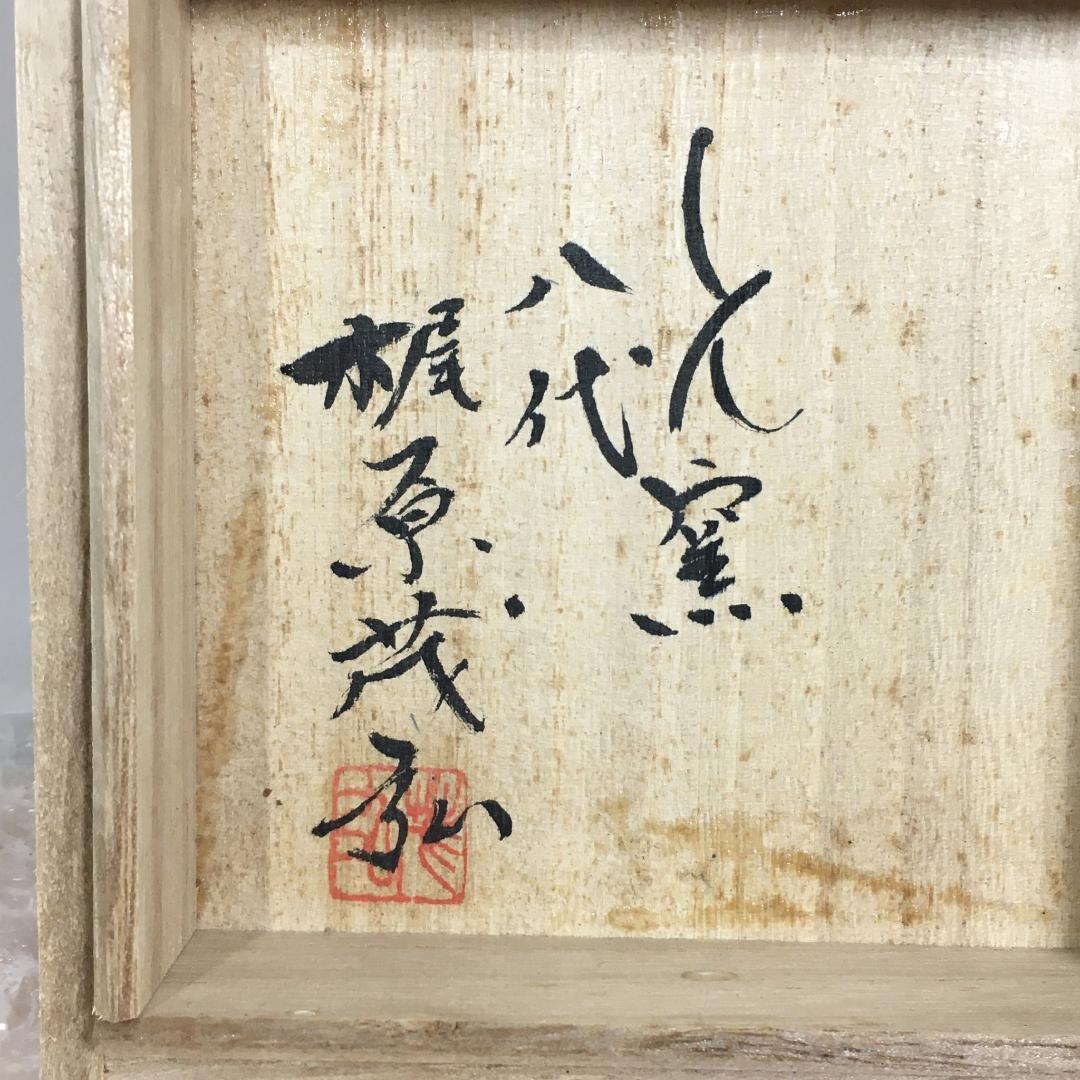 しん窯
八代
梶原茂弘